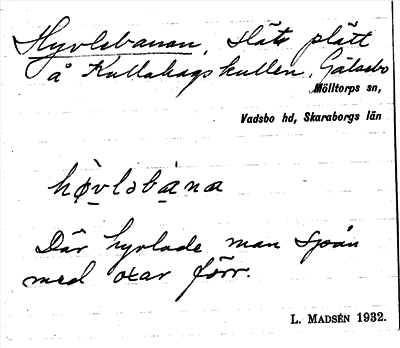 Hyvlsbanan, slät plätt
å Kullahagskullen, Gälsebo
Mölltorps sn,
Vadsbo hd, Skaraborgs län
hø̱vlsba̱na
Där hyvlade man spån
med oxar förr.
L. MADSÉN 1932.